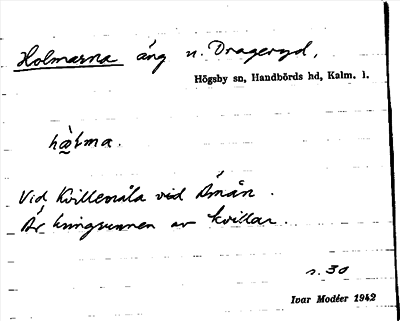 Holmarna äng n. Drageryd,
Högsby sn, Handbörds hd, Kalm. l.
hæ̀ɫma.
Vid Kvillemåla vid Åmån.
Är kringrunnen av kvillar.
s. 30
Ivar Modéer 1942